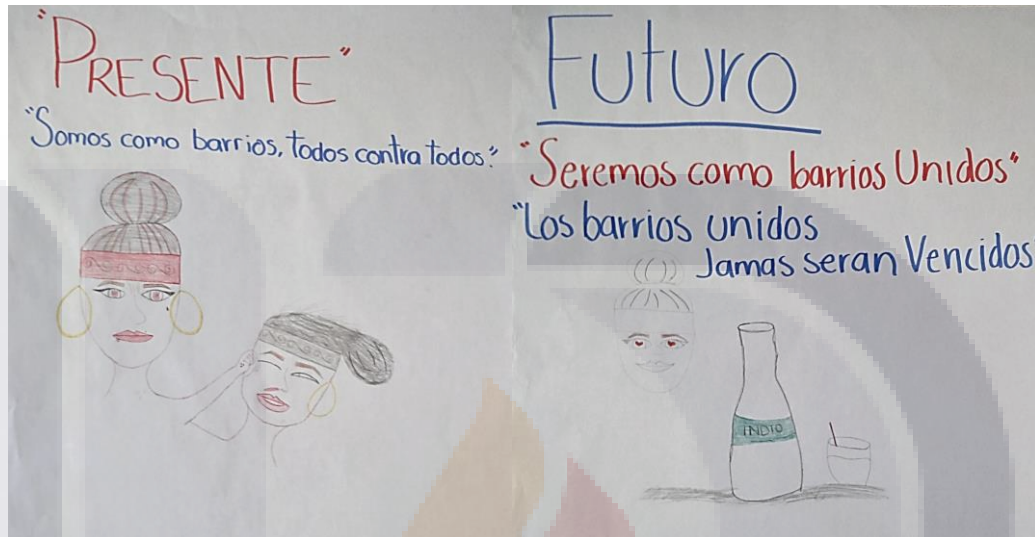 "PRESENTE"
"Somos como barrios, todos contra todos."
Futuro
"Seremos como barrios Unidos"
"Los barrios unidos
Jamas seran Vencidos
INDIO